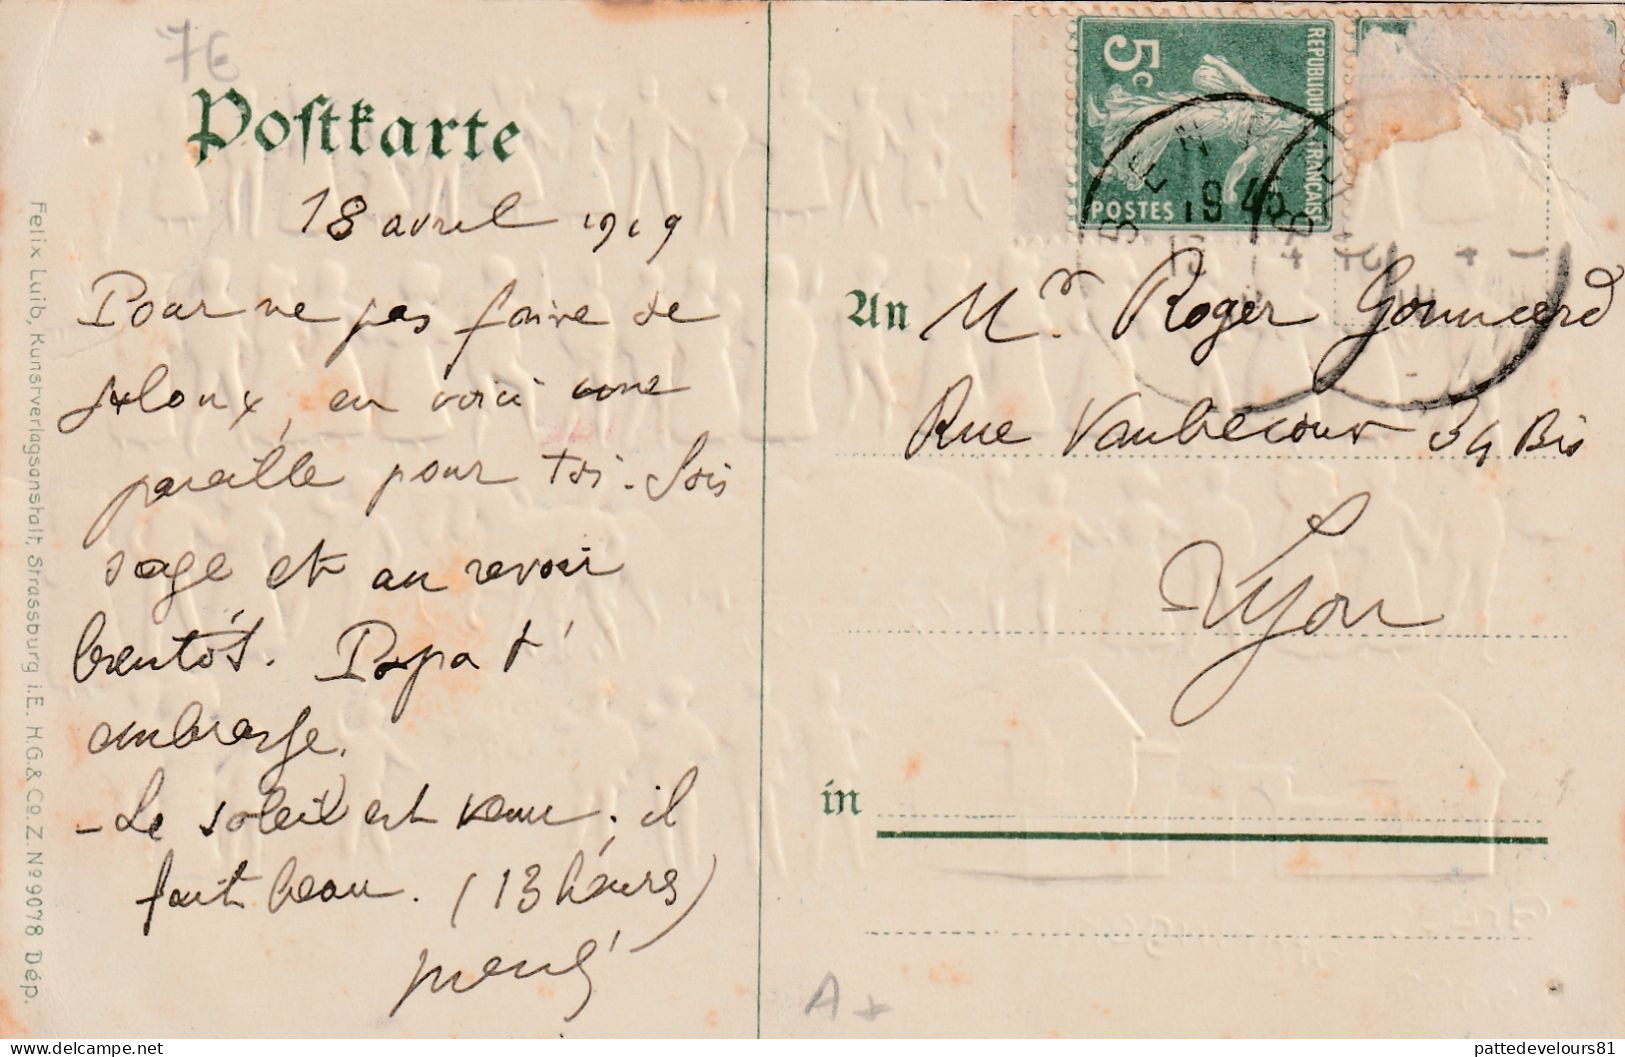 76
Postkarte
18 avril 1919
Pour ne pas faire de
jaloux, en voici une
pareille pour toi. Sois
sage et au revoir
bientôt. Papa t'
embrasse.
- Le soleil est venu ; il
fait beau. (13 heures)
Felix Luib, Kunstverlagsanstalt, Strassburg i.E. H.G.& Co. Z. No 9078 Dép.
REPUBLIQUE FRANÇAISE
5c
POSTES
19 45
An Mr. Roger Gonnard
Rue Vaubecour 34 Bis
Lyon
in
A+
pattedevelours81